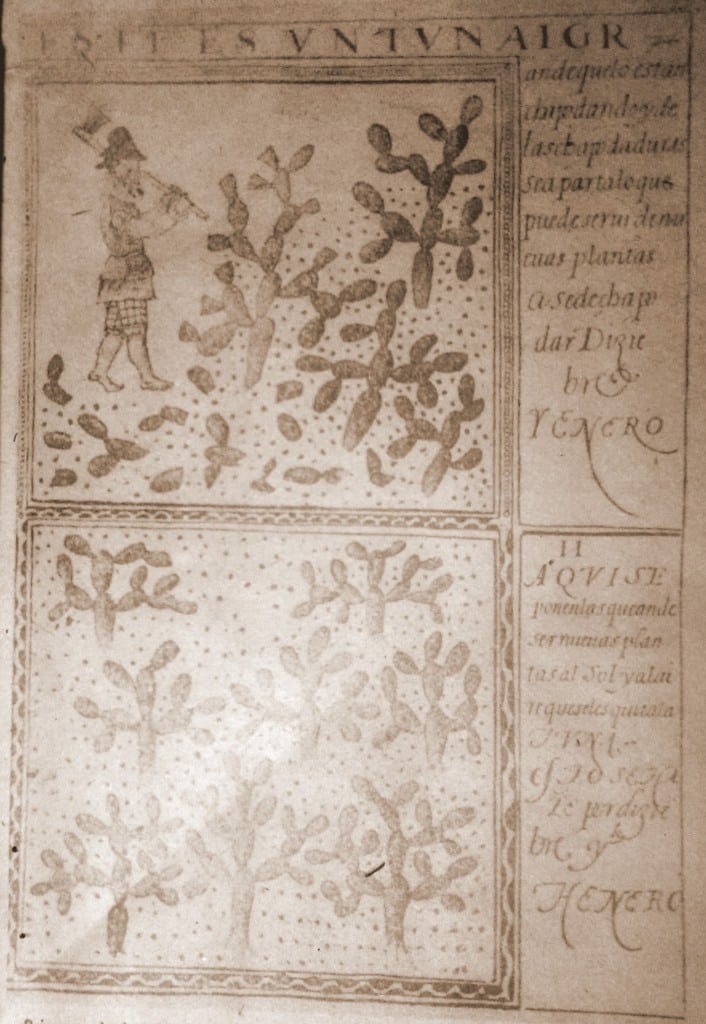 ESTE ES VN TVNAL GR
ande que lo están
chapodando y de
las chapdaduras
sea parta lo que
puede serui de nu
euas plantas
a se de chapo
dar Dizie
bre
YENERO
II
AQVI SE
ponen las que an de
ser nueuas plan
tas al Sol y al ai
re que se les quita la
TVNA
ESTO SE HA
Ze por dizie
bre y
HENERO